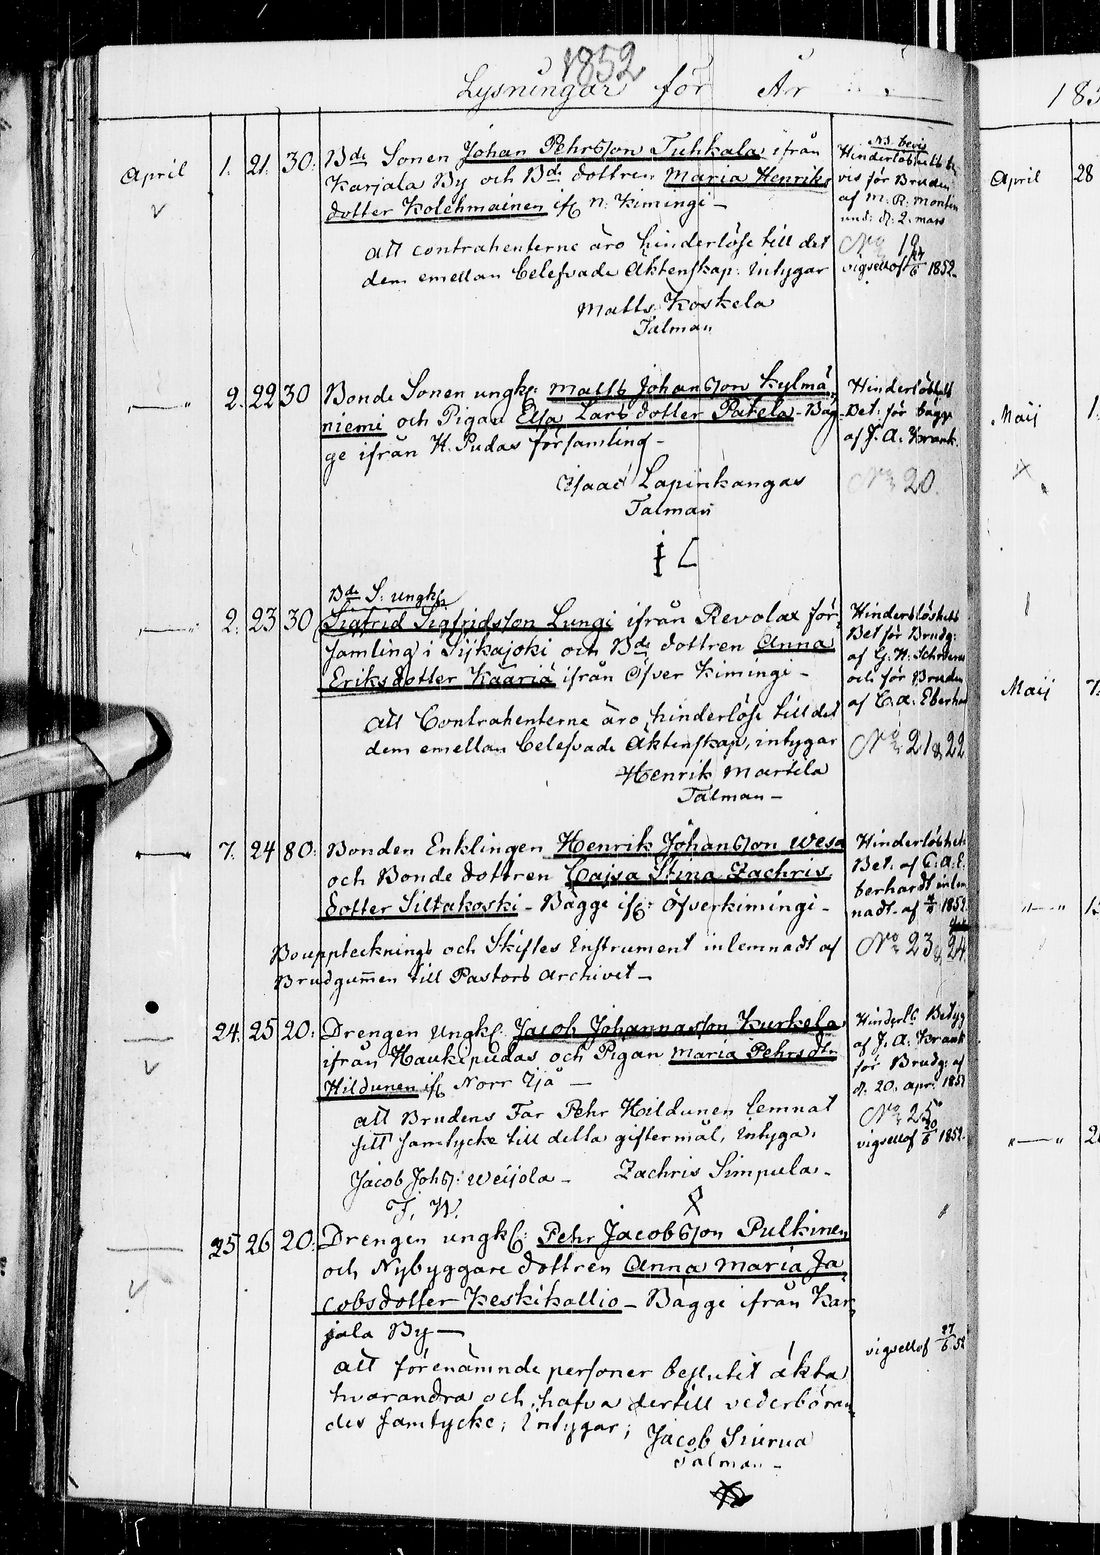 1852
Lysningar för År
April 1. 21. 30. Bde Sonen Johan Pehrsson Tuhkala ifrån
Karjala By och Bde dottren Maria Henriks
dotter Kolehmainen if: n. Kimingi –
att contrahenterne äro hinderlöse till det
dem emellan belefvade Äktenskap: intygar
Matts Koskela
Talman
NB. bevis
Hinderlöshets be
vis för Bruden
af M. R. Montin
und: d. 2. mars
No 19
vigsell af 27/6 1852.
—„— 2. 22 30 Bonde Sonen ungk: Matts Johansson Kylmä
niemi och Pigan Elsa Lars dotter Patela – Båg-
ge ifrån H. Pudas församling –
Isaac Lapinkangas
Talman
Hinderlöshets
Bet: för bägge
af J. A. Krank.
No 20.
—„— 2. 23 30 Bde S: ungk:
Sigfrid Sigfridsson Lungi ifrån Revolax för-
samling i Sijkajoki och Bde dottren Anna
Eriksdotter Kääriä ifrån Öfver Kimingi –
att Contrahenterne äro hinderlöse till det
dem emellan belefvade Äktenskap, intygar
Henrik Martila
Talman –
Hinderslöshets
Bet för Brudg:
af G. W.
och för Bruden
af C. A. Eberhar
No 21 & 22
—„— 7. 24 80. Bonden Enklingen Henrik Johansson Wesa
och Bonde dottren Cajsa Stina Zachris
dotter Siltakoski – Bägge if: Öfverkimingi –
Bouppteckning och Skiftes Instrument inlemnadt af
Brudgum̄en till Pastors Archivet –
Hinderlöshets
Bet. af C. A. E.
berhardt inlem
nadt af 1852.
No 23 & 24
24. 25 20. Drengen Ungk: Jacob Johannasson Kurkela
ifrån Haukipudas och Pigan Maria Pehrs dtr
Hildunen if: Norr Ijå –
att Brudens Far Pehr Hildunen lemnat
sitt samtycke till detta giftermål, intyga.
Jacob Johss: Weijola – Zachris Simpula –
T. W.
Hinderls Betyg
af J. A. Krank
för Brudg: af
d. 20. apr. 1852
No 25
vigsell af 20/6 1852.
25 26 20. Drengen ungk: Pehr Jacobsson Pulkinen
och Nybyggare dottren Anna Maria Ja
cobsdotter Keskikallio – Bägge ifrån Kar
jala By –
att förenämnde personer beslutit äkta
hvarandra och hafva dertill vederböran
des samtycke; Intygar; Jacob Siurua
Talman –
vigsell af 27/6 52
185
April 28
Maij 1.
Maij 7.
—„— 15
—„— 2